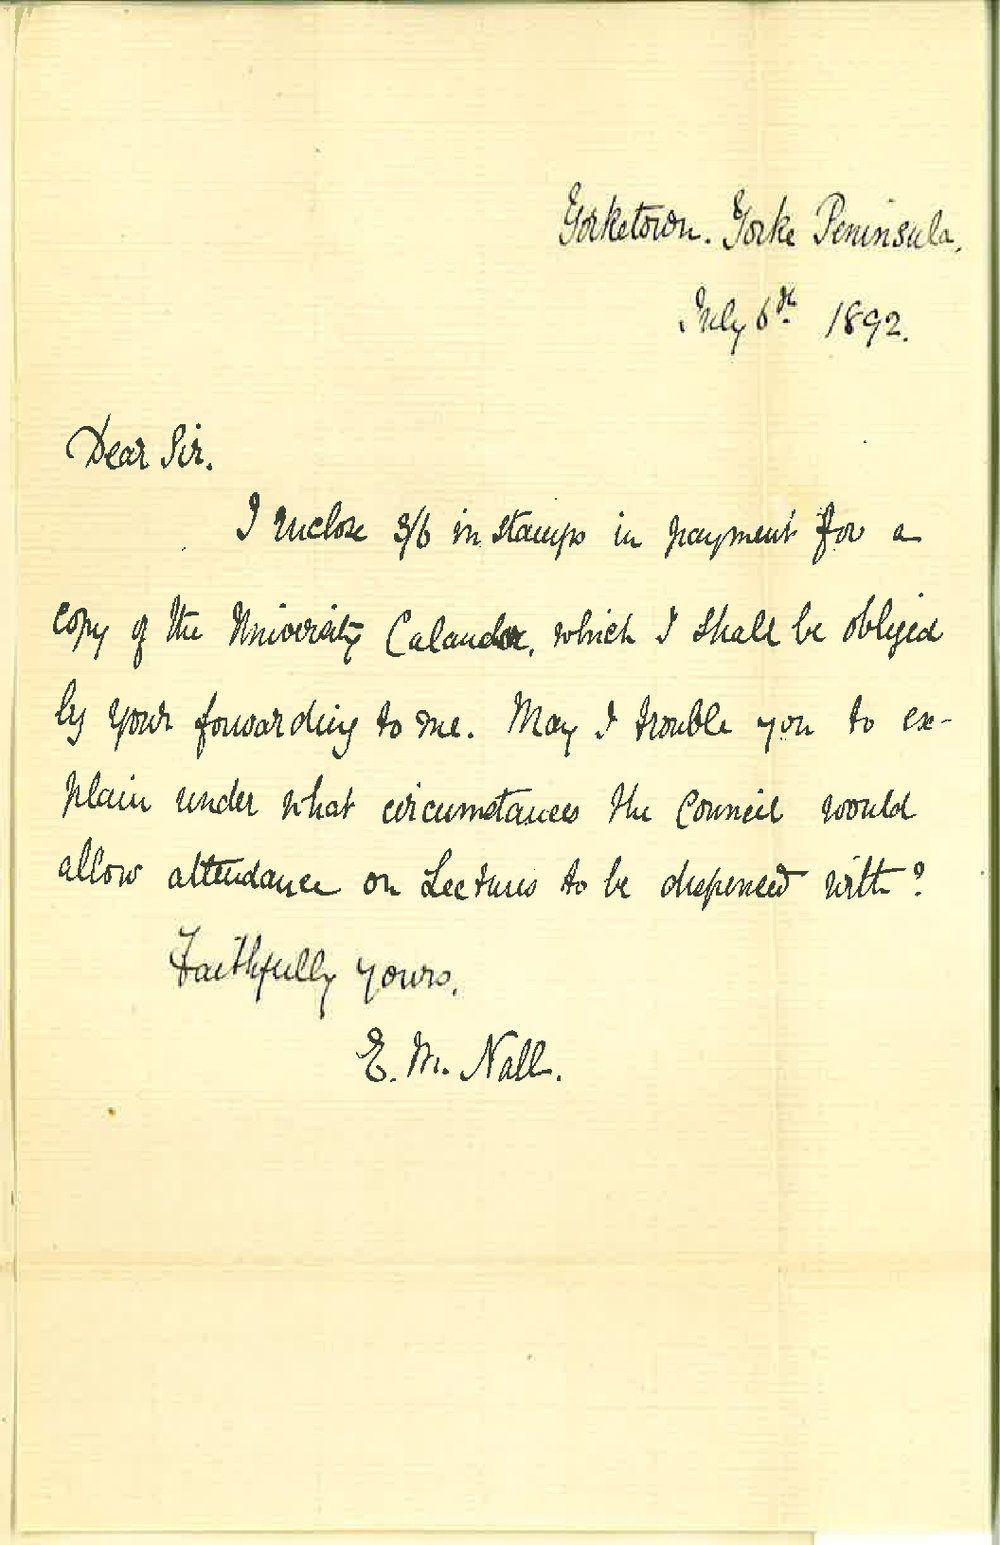 Yorketown. Yorke Peninsula.
July 6th. 1892.
Dear Sir.
I enclose 3/6 in stamps in payment for a
copy of the University Calandar, which I shall be obliged
by your forwarding to me. May I trouble you to ex-
plain under what circumstances the Council would
allow attendance on Lectures to be dispensed with?
Faithfully yours,
E. M. Nall.